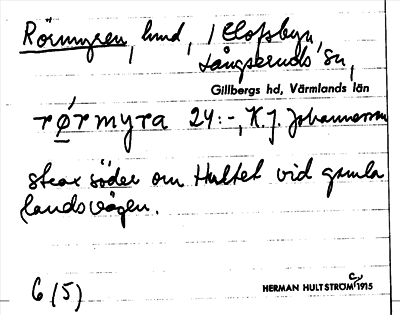 Rörmyren, lund, i Elofsbyn,
Långseruds sn,
Gillbergs hd, Värmlands län
rørmyra 24:-, K. J. Johannesson
strax söder om Hultet vid gamla
landsvägen.
6 (5)
HERMAN HULTSTRÖM 1915